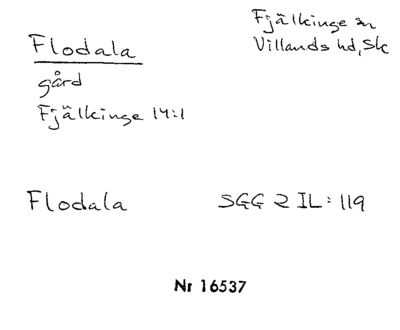 Flodala
gård
Fjälkinge 14:1
Fjälkinge sn
Villands hd, Sk
Flodala
SGG 2 IL: 119
Nr 16537